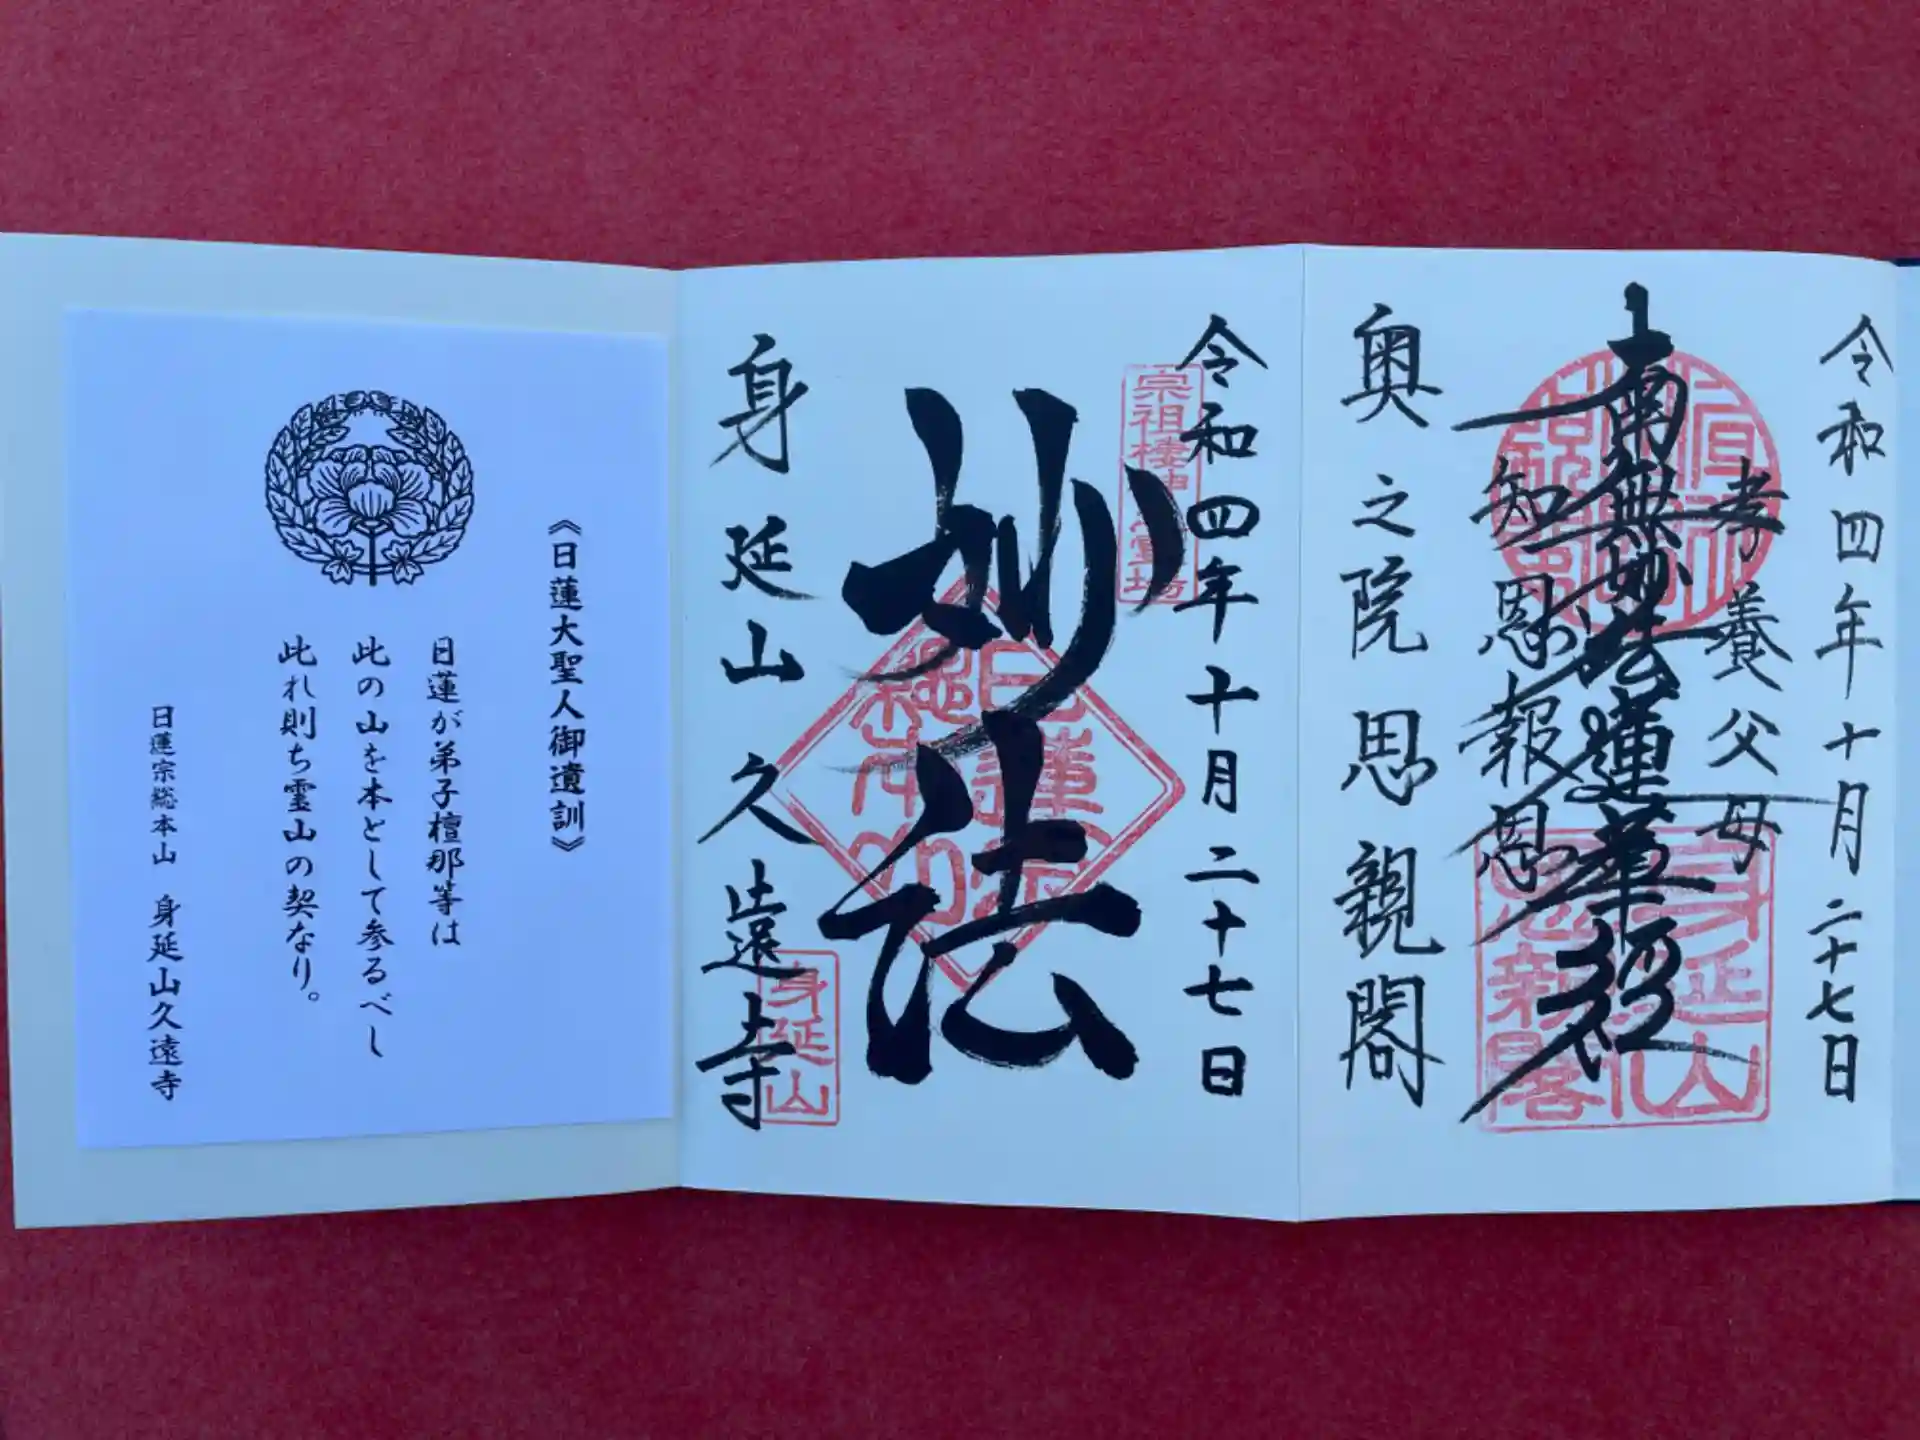 令和四年十月二十七日
孝養父母
南無妙法蓮華経
知恩報恩
奥之院思親閣
身延山
思親閣
令和四年十月二十七日
宗祖棲神
霊場
妙法
日蓮宗
総本山
身延山久遠寺
身延山
《日蓮大聖人御遺訓》
日蓮が弟子檀那等は
此の山を本として参るべし
此れ則ち霊山の契なり。
日蓮宗総本山 身延山久遠寺